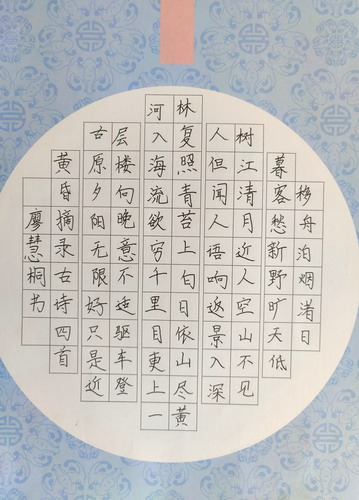 移舟泊烟渚日
暮客愁新野旷天低
树江清月近人空山不见
人但闻人语响返景入深
林复照青苔上白日依山尽黄
河入海流欲穷千里目更上一
层楼向晚意不适驱车登
古原夕阳无限好只是近
黄昏摘录古诗四首
廖慧桐书